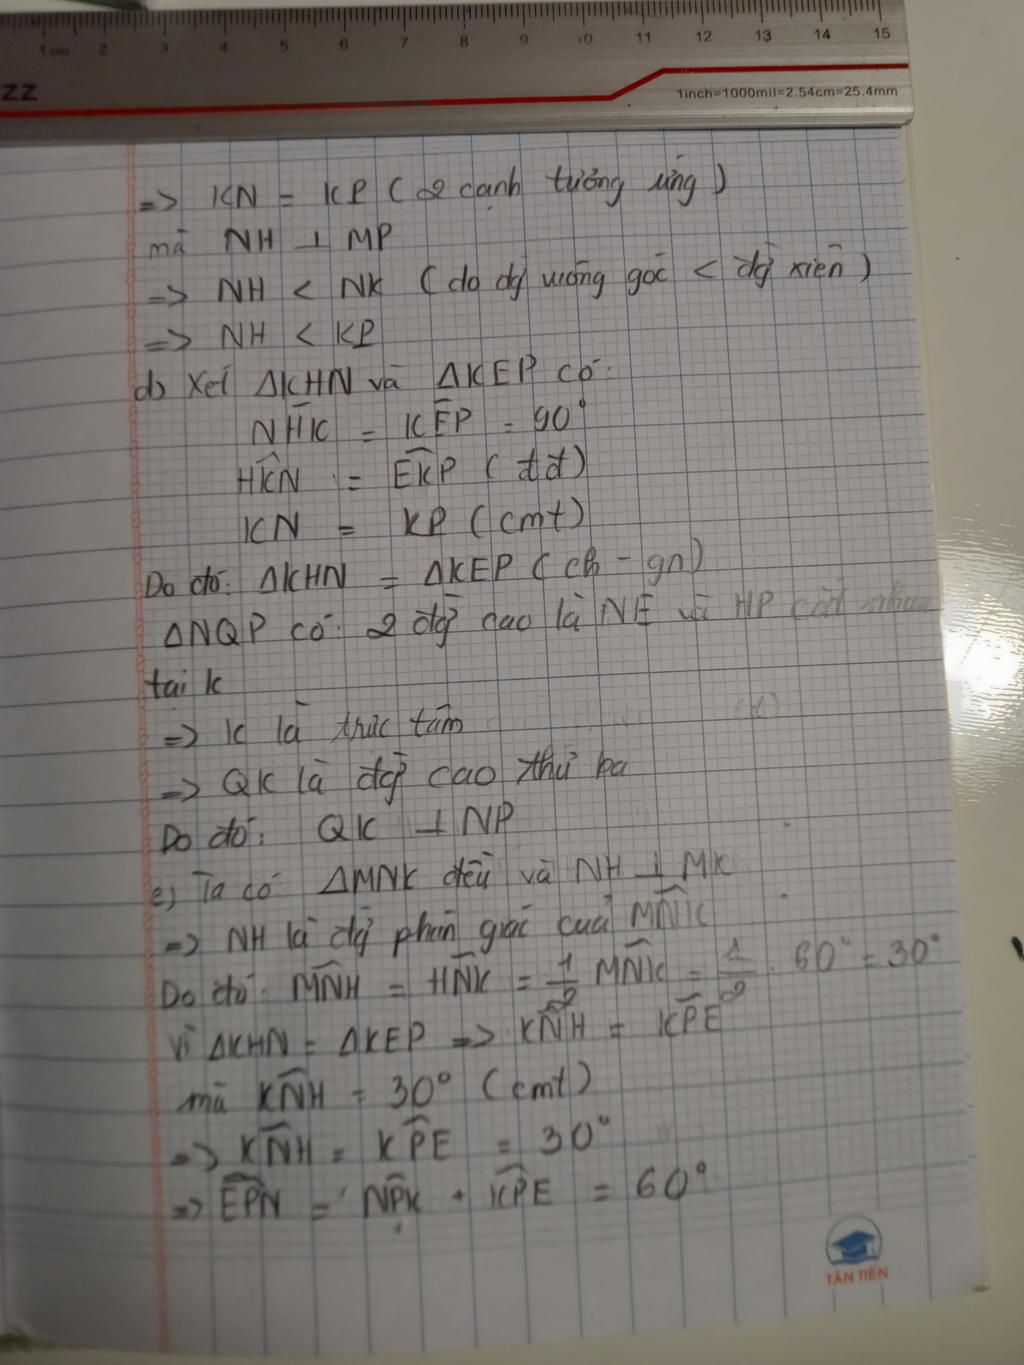 1cm 2 3 4 5 6 7 8 9 10 11 12 13 14 15
ZZ
1inch=1000mil=2.54cm=25.4mm
=> KN = KP ( 2 cạnh tương ứng )
mà NH ⊥ MP
=> NH < NK ( do đg vuông góc < đg xiên )
=> NH < KP
d) Xét ΔKHN và ΔKEP có:
NĤK = KÊP = 90°
HK̂N = EK̂P ( đđ )
KN = KP ( cmt )
Do đó: ΔKHN = ΔKEP ( ch - gn )
ΔNQP có: 2 đg cao là NE và HP cắt nhau
tại K
=> K là trực tâm
=> QK là đg cao thứ ba
Do đó: QK ⊥ NP
e) Ta có ΔMNK đều và NH ⊥ MK
=> NH là đg phân giác của MN̂K
Do đó: MN̂H = HN̂K = 1/2 MN̂K = 1/2 . 60° = 30°
Vì ΔKHN = ΔKEP => KN̂H = KP̂E
mà KN̂H = 30° ( cmt )
=> KN̂H = KP̂E = 30°
=> EP̂N = NP̂K + KP̂E = 60°
TÂN TIẾN